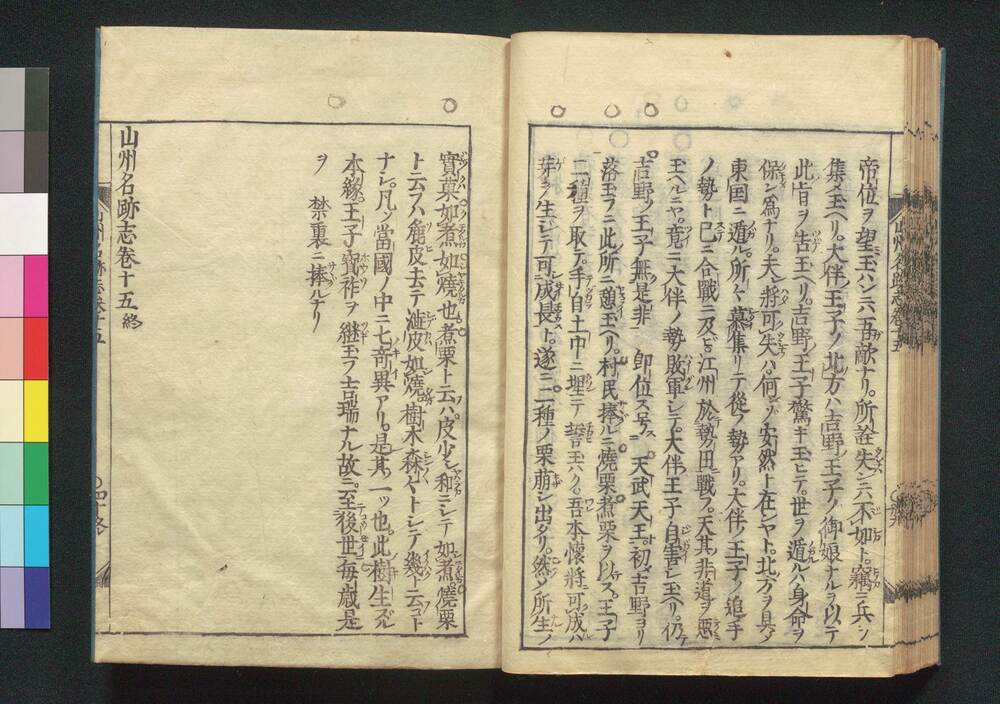 帝位ヲ望玉ハン六吾敵ナリ。所詮失ンニ不如ト。竊ニ兵ヲ
集メ玉ヘリ。大伴王子ノ北方ハ吉野王子ノ御娘ナルヲ以テ
此旨ヲ告玉ヘリ。吉野ノ王子驚キ玉ヒテ。世ヲ遁ルハ身命ヲ
保ン爲ナリ。夫將可失ハ何ソ安然ト在ンヤト。北方ヲ具〆
東国ニ遁ル。所々募集リテ從フ勢アリ。大伴ノ王子ノ追手
ノ勢ト已ニ合戰ニ及ヒ江州於勢田戰フ。天其非道ヲ惡
玉ヘルニヤ。竟ニ大伴ノ勢敗軍シテ。大伴王子自害シ玉ヘリ。仍テ
吉野ノ王子無是非 即位ス号ス 天武天王。初メ吉野ヨリ
落玉フニ此所ニ憩玉ヘリ。村民捧ルニ燒栗煮栗ヲ以ス。王子
二種ヲ取テ。手自土中ニ埋テ誓玉ハク。吾本懷將可成ハ
芽ヲ生シテ可成長ト。遂ニ二種ノ栗萠シ出タリ。然ソ所生ノ
實菓如煮如燒也。煮栗ト云ハ。皮少シ和ニシテ如煮。燒栗
ト云フハ麁皮去テ澁皮如燒。樹木森々トシテ幾ト云コト
ナシ。凡ソ當國ノ中ニ七竒異アリ。是其一ッ也。此樹生スル
本緣。王子寳祚ヲ継玉フ吉瑞ナル故ニ。至後世每歳是
ヲ 禁裏ニ捧ルナリ
山州名跡志卷十五終